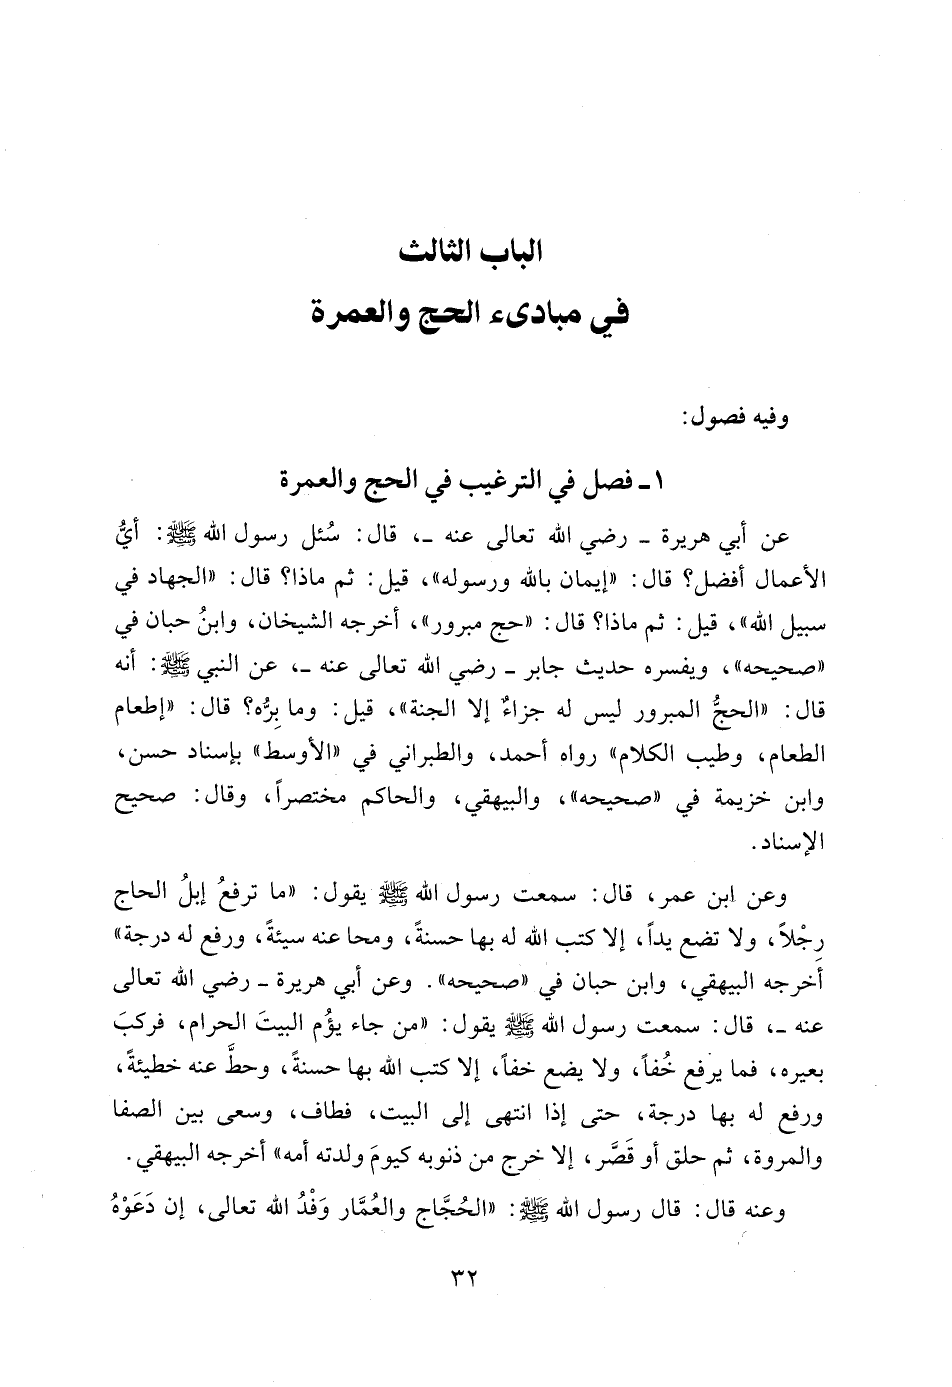 الباب الثالث
في مبادىء الحج والعمرة
وفيه فصول:
١ ـ فصل في الترغيب في الحج والعمرة
عن أبي هريرة ـ رضي الله تعالى عنه ـ، قال: سُئل رسول الله ﷺ: أيُّ
الأعمال أفضل؟ قال: «إيمان بالله ورسوله»، قيل: ثم ماذا؟ قال: «الجهاد في
سبيل الله»، قيل: ثم ماذا؟ قال: «حج مبرور»، أخرجه الشيخان، وابنُ حبان في
«صحيحه»، ويفسره حديث جابر ـ رضي الله تعالى عنه ـ، عن النبي ﷺ: أنه
قال: «الحجُّ المبرور ليس له جزاءٌ إلا الجنة»، قيل: وما بِرُّه؟ قال: «إطعام
الطعام، وطيب الكلام» رواه أحمد، والطبراني في «الأوسط» بإسناد حسن،
وابن خزيمة في «صحيحه»، والبيهقي، والحاكم مختصراً، وقال: صحيح
الإسناد.
وعن ابن عمر، قال: سمعت رسول الله ﷺ يقول: «ما ترفعُ إبلُ الحاج
رِجْلاً، ولا تضع يداً، إلا كتب الله له بها حسنةً، ومحا عنه سيئةً، ورفع له درجة»
أخرجه البيهقي، وابن حبان في «صحيحه». وعن أبي هريرة ـ رضي الله تعالى
عنه ـ، قال: سمعت رسول الله ﷺ يقول: «من جاء يؤُم البيتَ الحرام، فركبَ
بعيره، فما يرفع خُفاً، ولا يضع خفاً، إلا كتب الله بها حسنةً، وحطَّ عنه خطيئةً،
ورفع له بها درجة، حتى إذا انتهى إلى البيت، فطاف، وسعى بين الصفا
والمروة، ثم حلق أو قَصَّر، إلا خرج من ذنوبه كيومَ ولدته أمه» أخرجه البيهقي.
وعنه قال: قال رسول الله ﷺ: «الحُجَّاج والعُمَّار وَفْدُ الله تعالى، إن دَعَوْهُ
٣٢